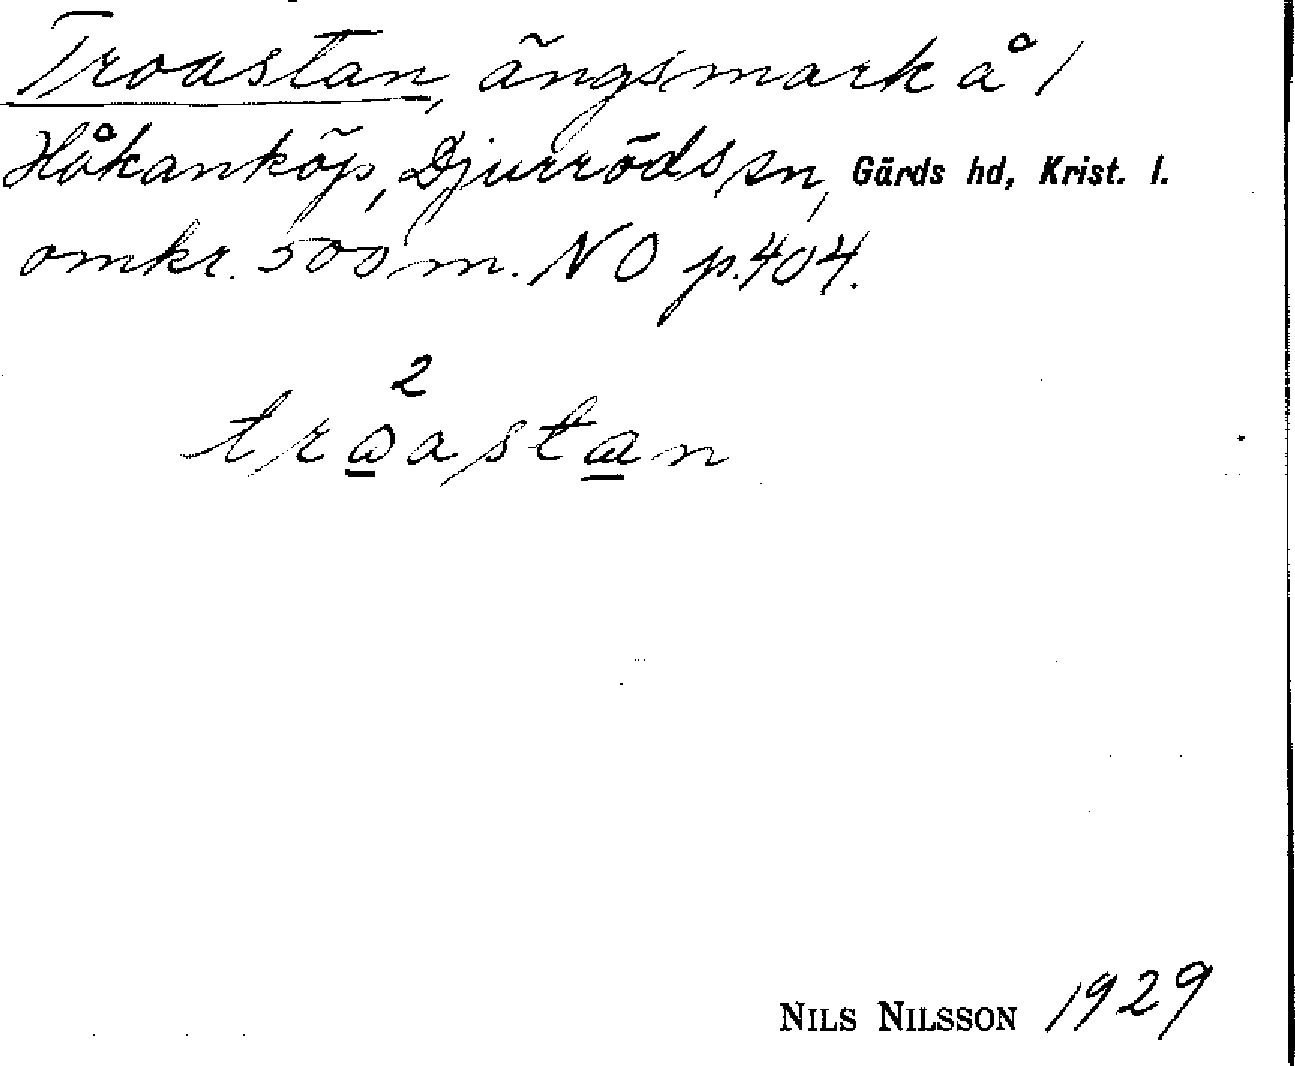 Troastan, ängsmark å 1
Håkanköp, Djurröds sn, Gärds hd, Krist. l.
omkr. 500 m. NO p. 404.
2
troastan
NILS NILSSON 1929